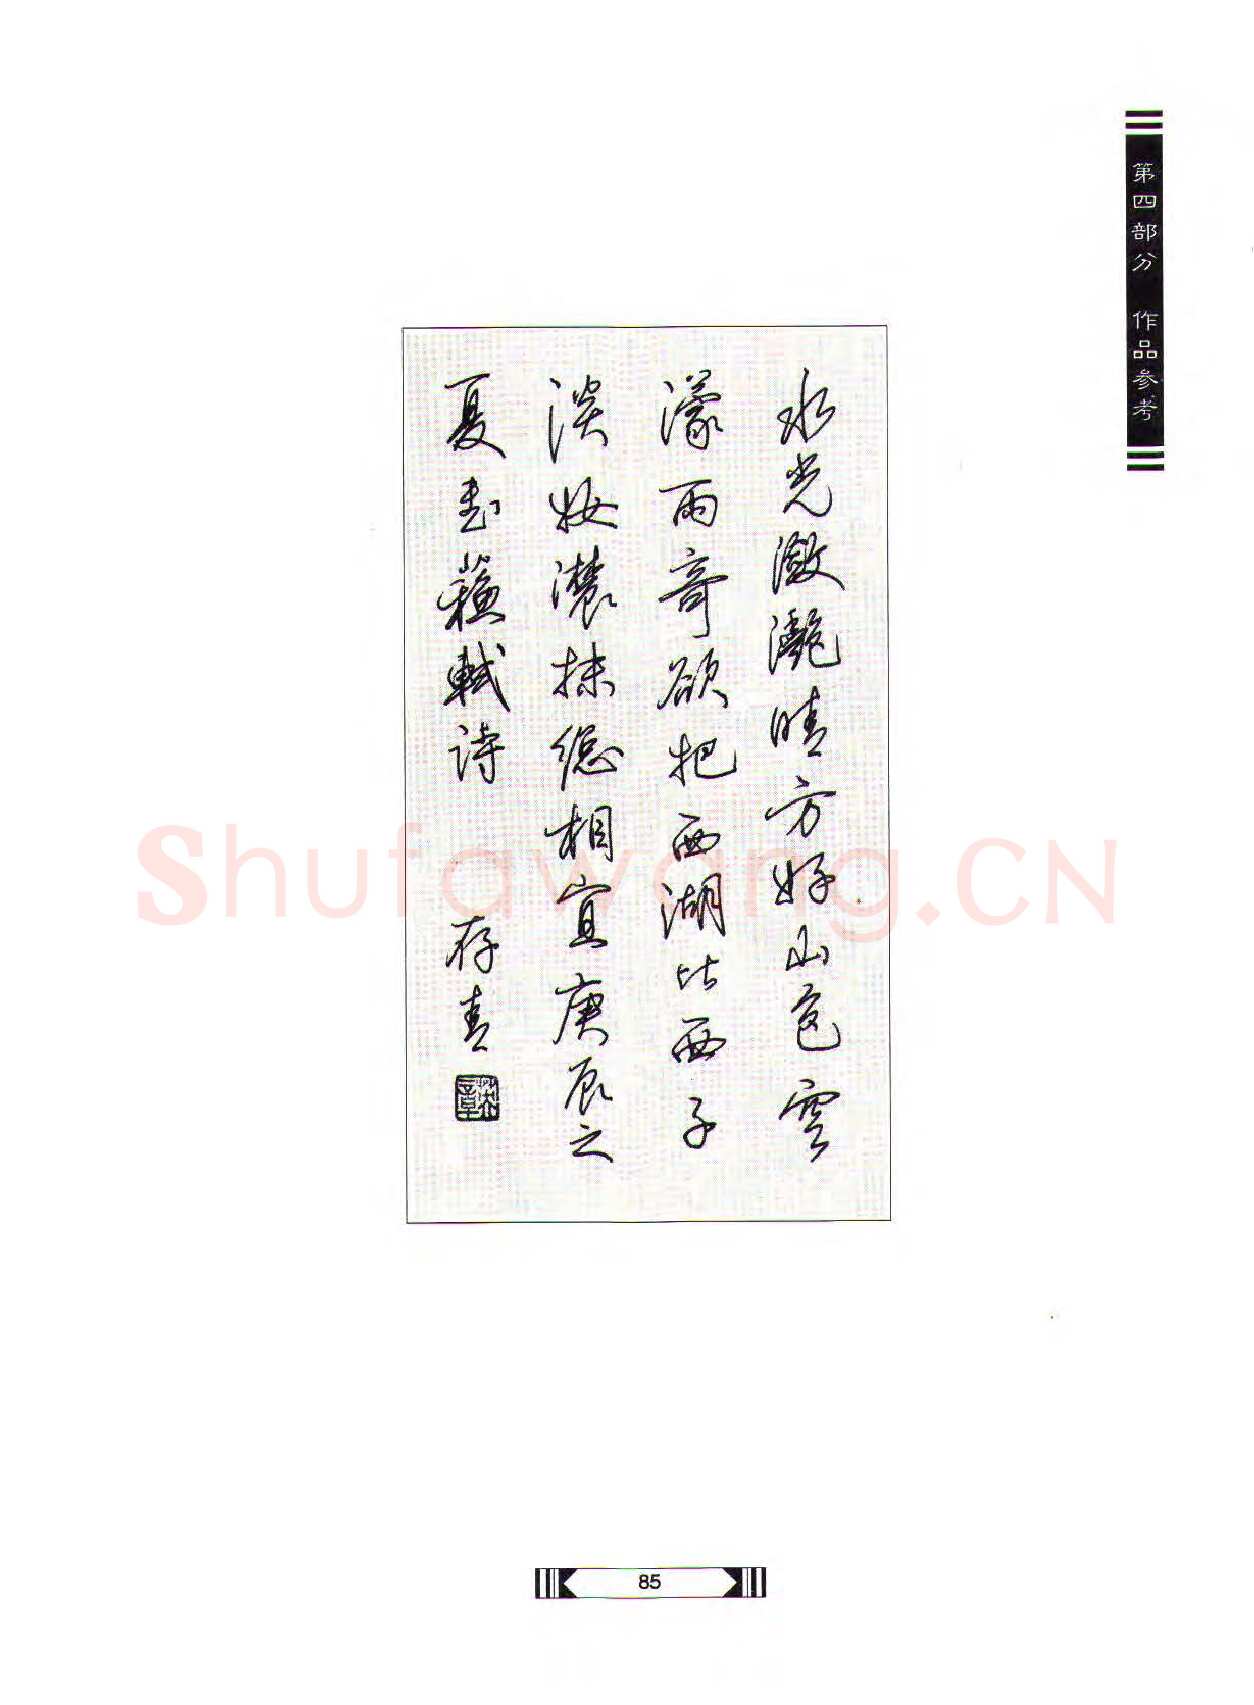 第四部分 作品参考
水光潋灩晴方好山色雲
濛雨奇欲把西湖比西子
淡妝濃抹總相宜庚辰之
夏書蘇軾诗 存青
Shufawang.CN
85